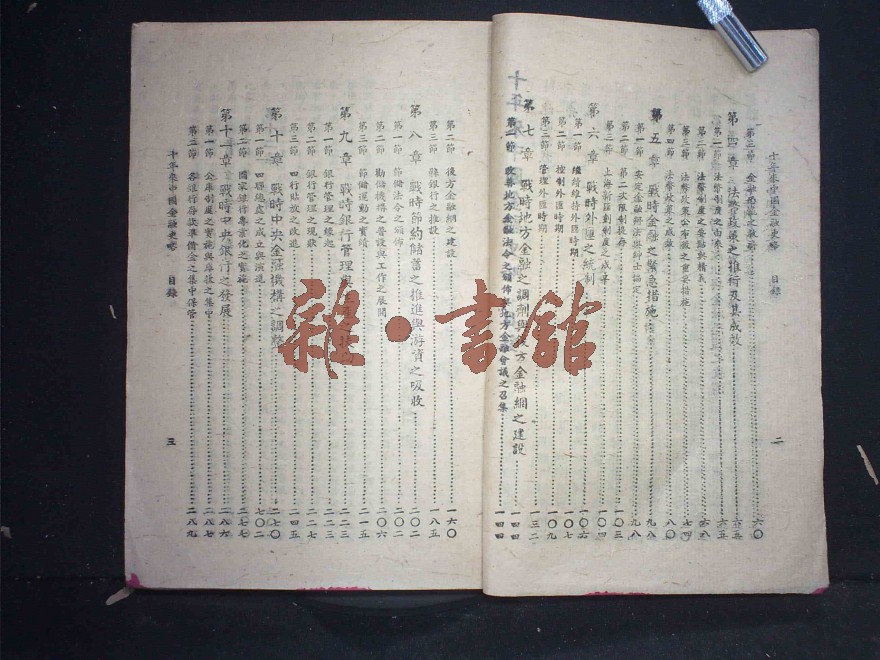 十年來中國金融史略 目錄 二
第三節 金融 六〇
第四章 法幣政策之推行及其成效 六五
第一節 法幣制度之由來 六五
第二節 法幣制度之要點與精義 六八
第三節 法幣政策公布後之重要措施 七四
第四節 法幣政策之成效 八〇
第五章 戰時金融之緊急措施 九八
第一節 安定金融辦法與紳士協定 九八
第二節 第二次限制提存 一〇三
第三節 上海新匯劃制度之成華 一〇四
第六章 戰時外匯之統制 一〇六
第一節 繼續維持外匯時期 一〇七
第二節 控制外匯時期 一〇九
第三節 管理外匯時期 一三二
第七章 戰時地方金融之調劑與後方金融網之建設 一四四
第一節 改善地方金融法令之頒佈與地方金融會議之召集 一四四
第二節 後方金融網之建設 一六〇
第三節 縣銀行之推設 一八五
第八章 戰時節約儲蓄之推進與游資之吸收 二〇二
第一節 節儲法令之頒佈 二〇二
第二節 勸儲機構之普設與工作之展開 二〇六
第三節 節儲運動之實績 二一五
第九章 戰時銀行管理與 二二三
第一節 銀行管理之緣起 二二三
第二節 銀行管理之現狀 二二七
第三節 四行貼放之改進 二四五
第十章 戰時中央金融機構之調整 二七〇
第一節 四聯總處之成立與演進 七〇二
第二節 國家銀行專業化之實施 二七七
第十一章 戰時中央銀行之發展 二八六
第一節 公庫制度之實施與庫款之集中 二八七
第二節 各銀行存款準備金之集中保管 二八九
十年來中國金融史略 目錄 三
雜·書館